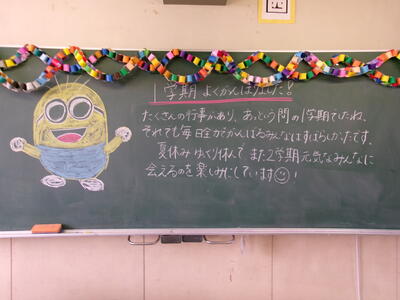 1学期 よくがんばりました!
たくさんの行事があり、あっという間の1学期でしたね。
それでも毎日全力でがんばるみんなはすばらしかったです。
夏休みゆっくり休んで また2学期元気なみんなに
会えるのを楽しみにしています